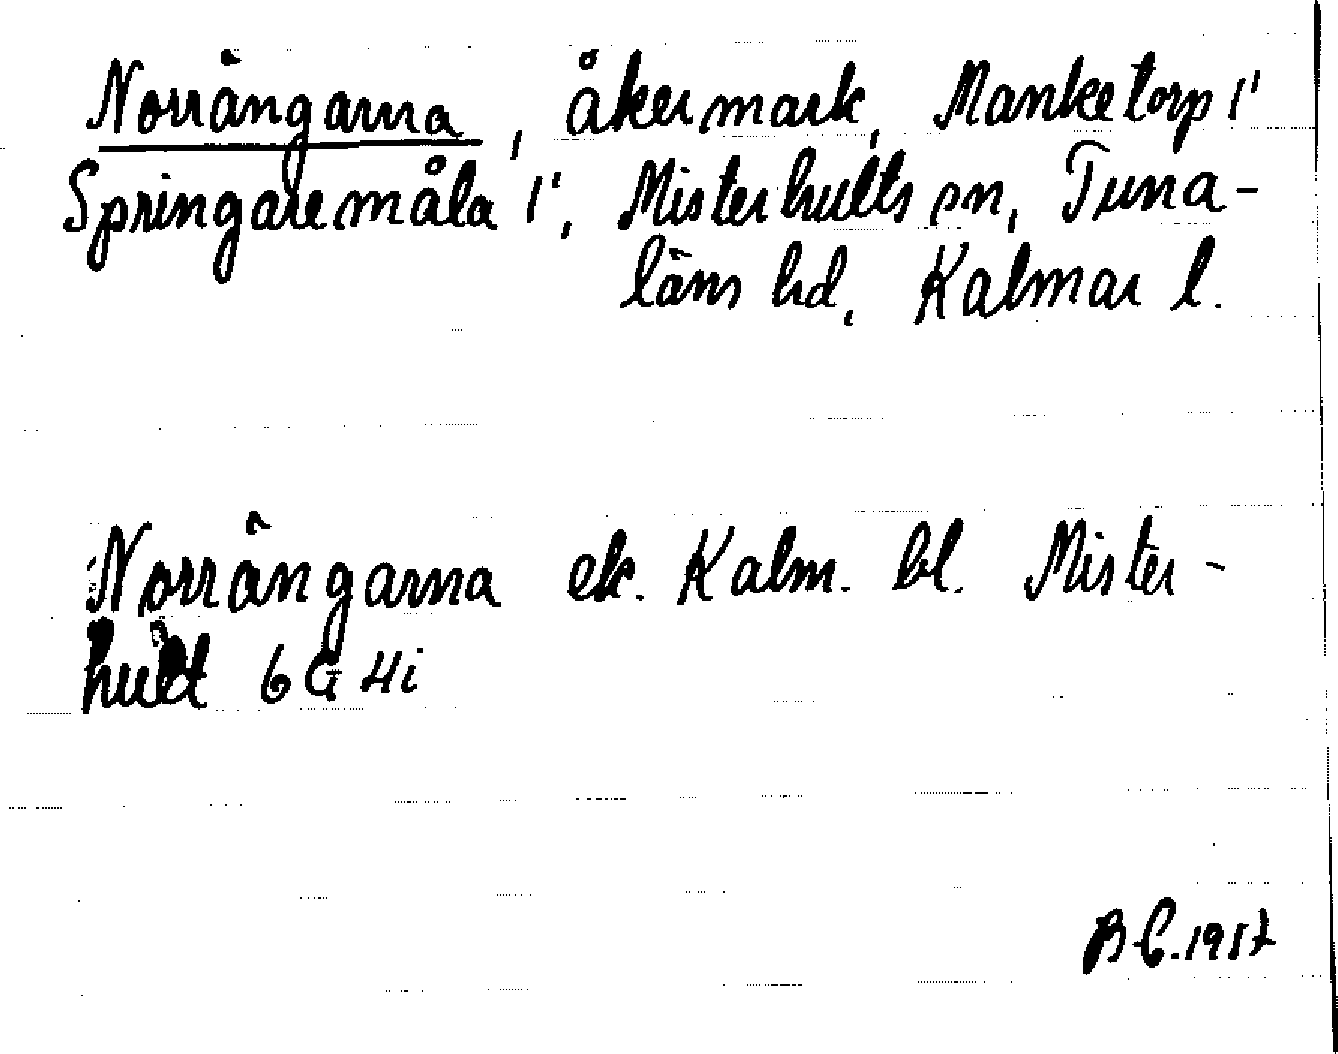 Norrängarna, åkermark, Manketorp 1¹
Springaremåla 1¹, Misterhults sn, Tuna-
läns hd, Kalmar l.
Norrängarna ek. Kalm. bl. Mister-
hult 6G 4i